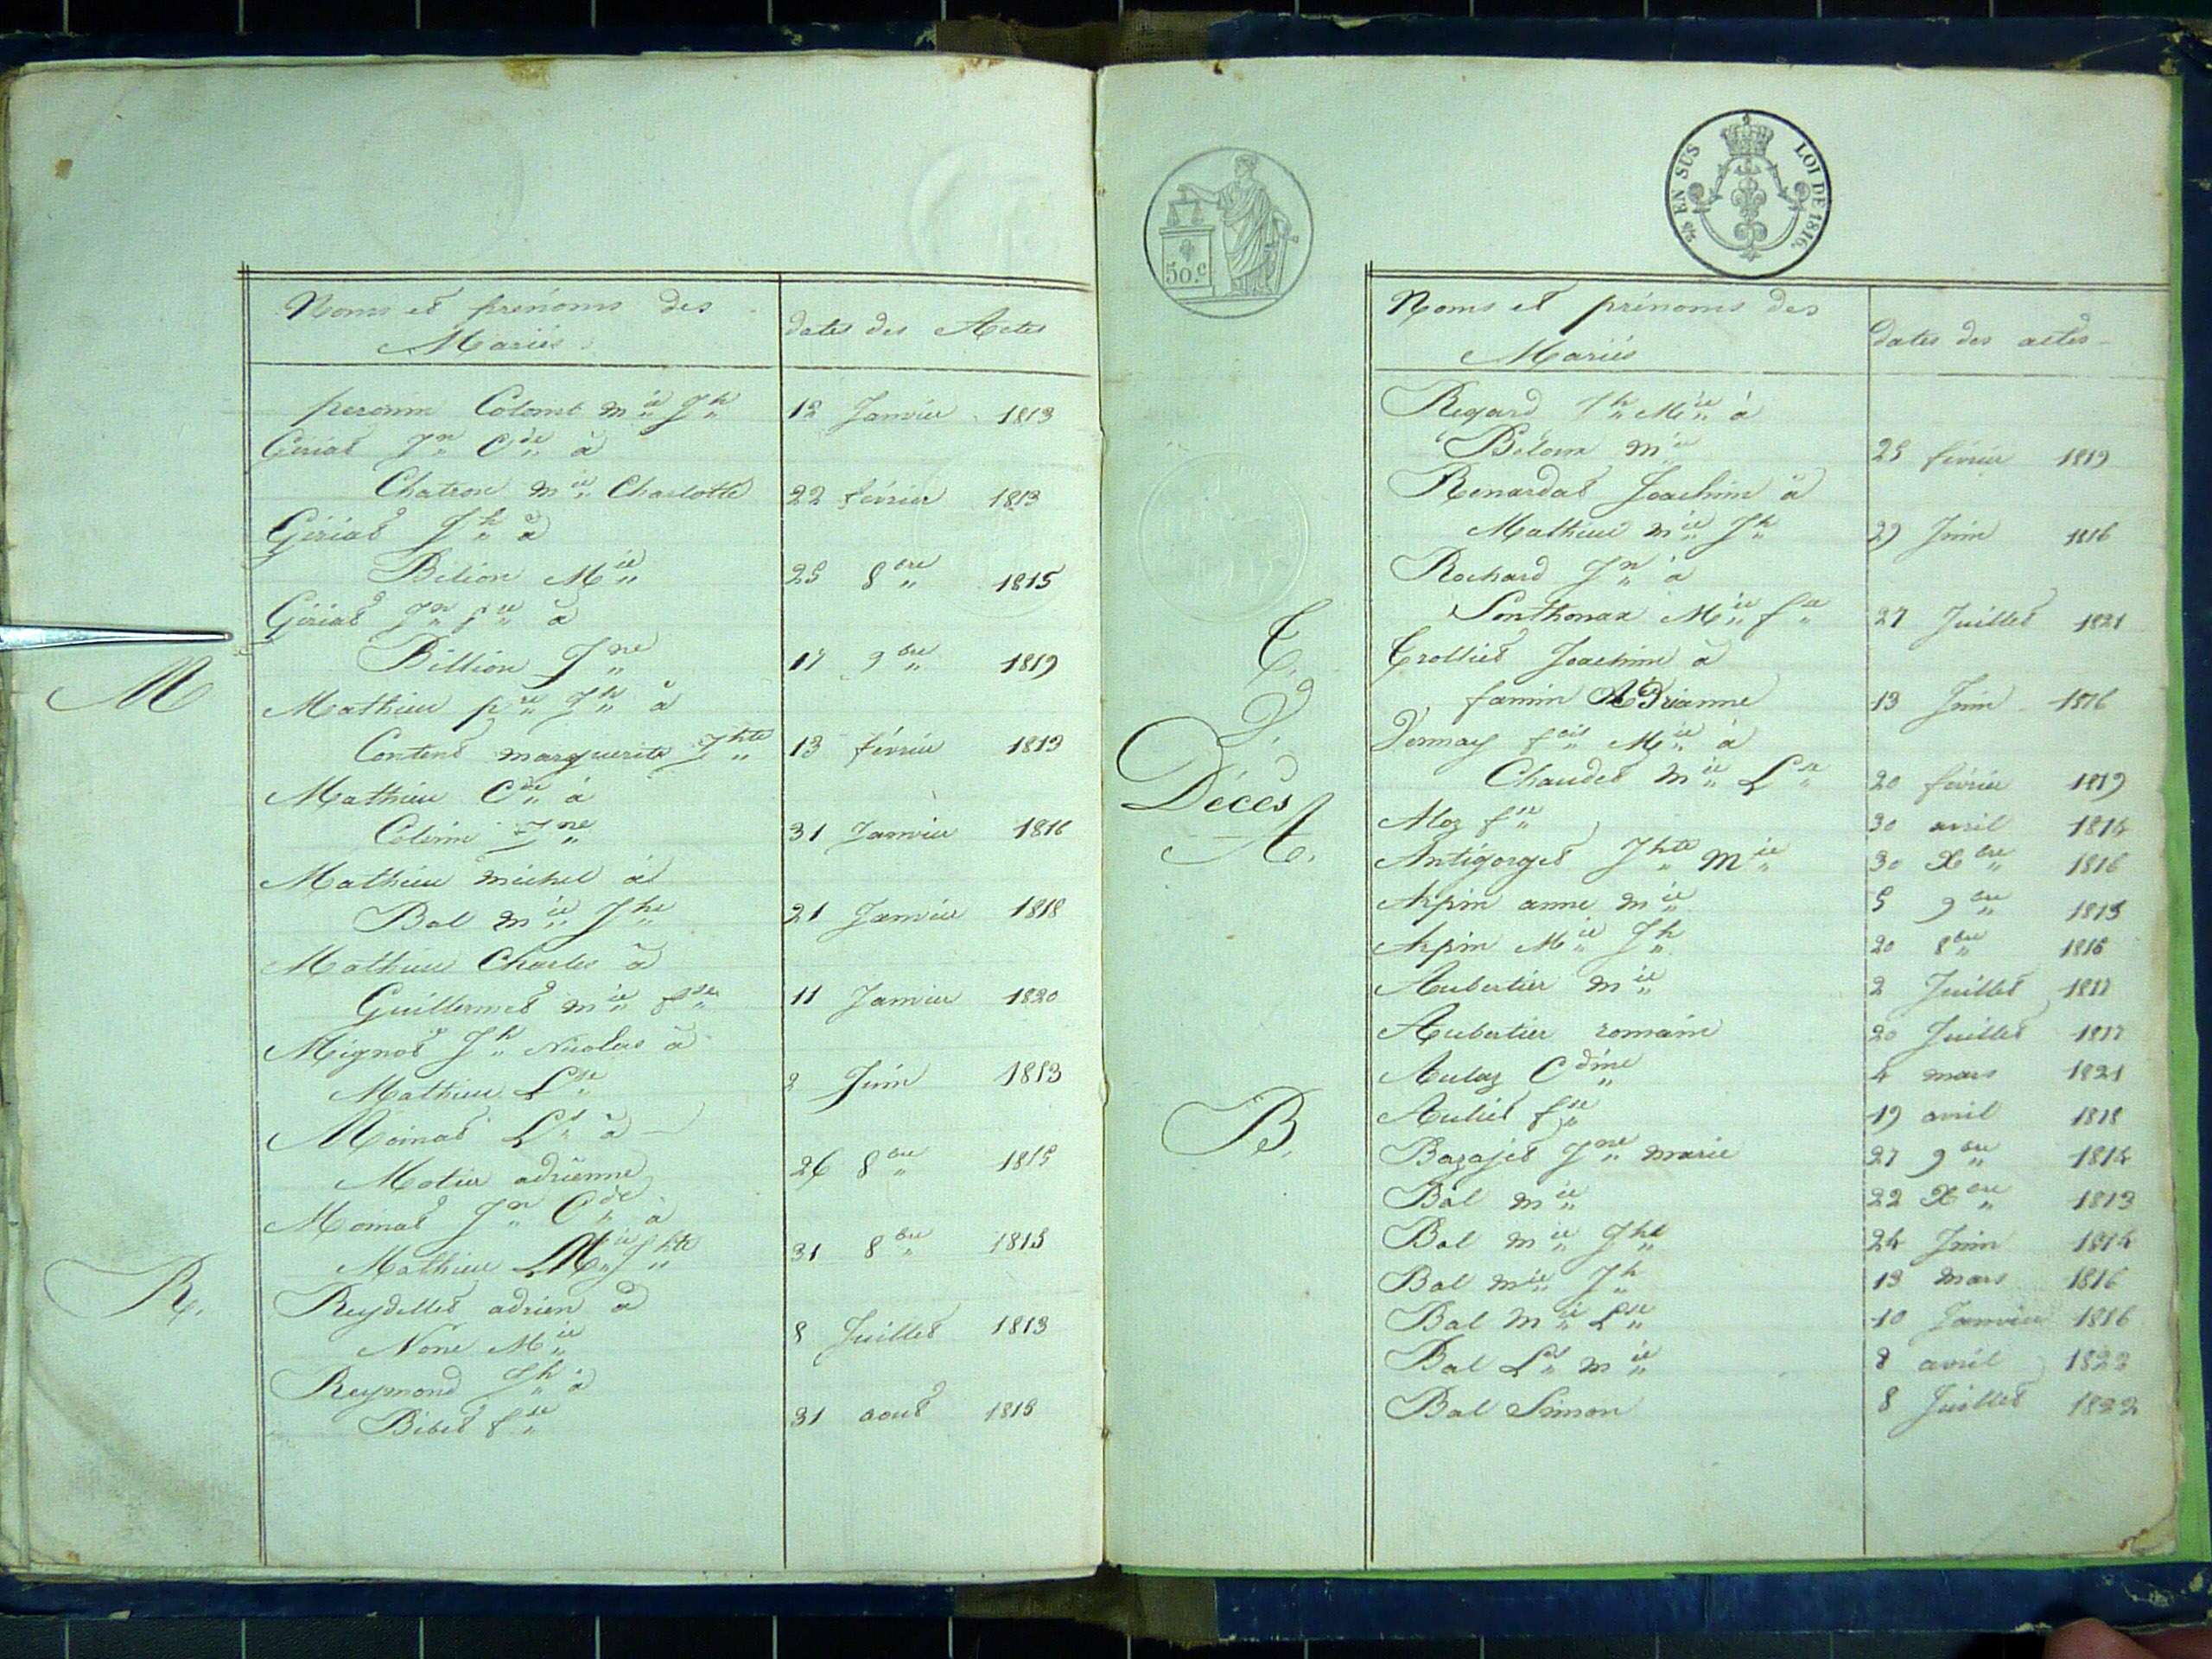 Noms et prénoms des
Mariés
dates des Actes
perrin Colomb mie Jh 12 Janvier 1813
Gériat Jn Cde à
Chatron mie Charlotte 22 février 1813
Gériat Jh à
Bilion Mie 25 8bre 1815
Gériat Jn
Billion Jne 17 9bre 1819
M
Mathieu pre Jh à
Contens marguerite Jhte 13 février 1819
Mathieu Cde à
Jne 31 Janvier 1816
Mathieu michel à
Bal mie Jhe 21 Janvier 1818
Mathieu Charles à
Guillermet mie fse 11 Janvier 1820
Mignot Jh Nicolas à
Mathieu Lse 2 Juin 1813
Moinat Ls à
Motier adrienne 26 8bre 1815
Moinat Jn Cde à
Mathieu Mie Jhte 31 8bre 1815
R.
Reydellet adrien à
None Mie 8 Juillet 1813
Reymond Jh à
Bibet fse 31 aout 1815
50.c
EN SUS LOI DE 1816.
Noms et prénoms des
Mariés
Dates des actes
Regard Jh Mie à
mie 25 février 1819
Renardat Joachim à
Mathieu mie Jh 27 Juin 1816
Rochard Jn à
Sonthonax Mie fse 27 Juillet 1821
T.
Trolliet Joachim à
famin ADrianne 13 Juin 1816
V.
Vernay fois Mie à
Chaudet mie Lse 20 février 1819
Décès
A.
Aloz fse 30 avril 1814
Antigorget Jhte Mie 30 Xbre 1816
Arpin anne mie 5 9bre 1815
Arpin Mie Jh 20 8bre 1816
Aubertier mie 2 Juillet 1817
Aubertier romain 20 Juillet 1817
Aulaz Cdine 4 mars 1821
Auliet fse 19 avril 1818
B.
Bazajet Jne marie 27 9bre 1814
Bal mie 22 Xbre 1813
Bal mie Jhe 24 Juin 1814
Bal mie Jh 13 mars 1816
Bal Mie Lse 10 Janvier 1816
Bal Ls mie 8 avril 1822
Bal Simon 8 Juillet 1822